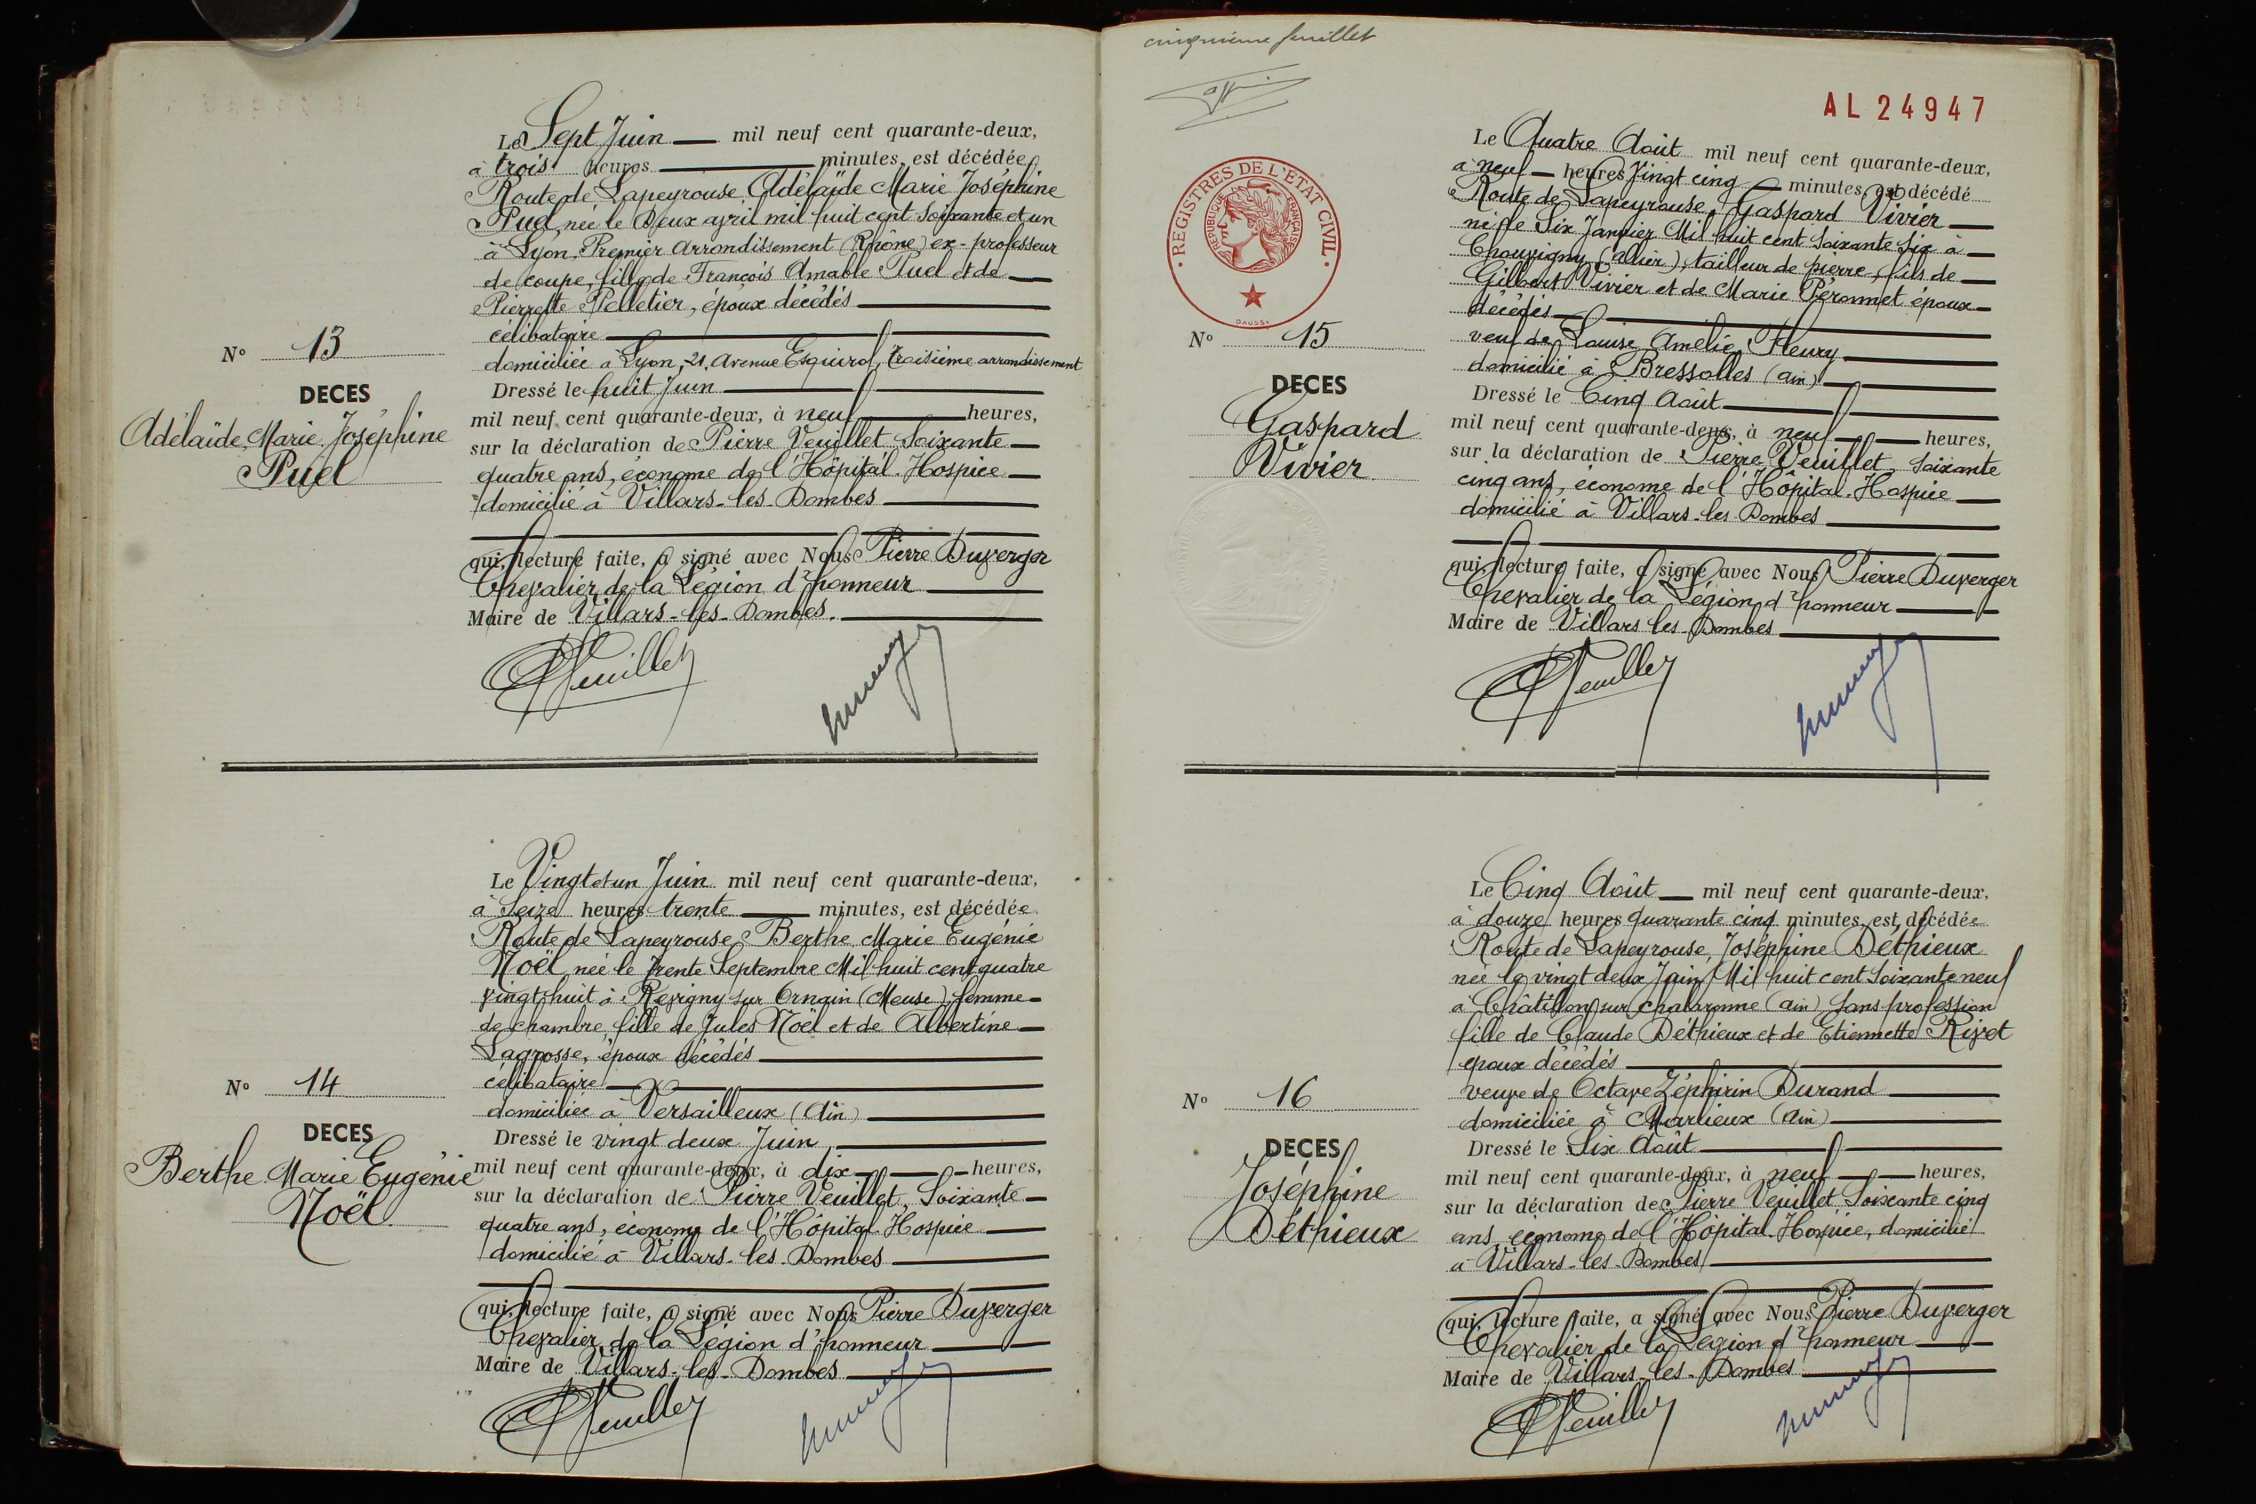 N° 13
DECES
Adélaïde, Marie, Joséphine
Puel
Le Sept Juin mil neuf cent quarante-deux,
à trois heures minutes, est décédée
Route de Lapeyrouse, Adélaïde Marie Joséphine
Puel, née le Deux avril mil huit cent soixante et un
à Lyon, Premier Arrondissement (Rhône) ex-professeur
de coupe, fille de François Amable Puel et de
Pierrette Pelletier, époux décédés
célibataire
domiciliée à Lyon, 21, Avenue Esquirol, troisième arrondissement
Dressé le huit Juin
mil neuf cent quarante-deux, à neuf heures,
sur la déclaration de Pierre Veuillet, Soixante
quatre ans, économe de l'Hôpital-Hospice
domicilié à Villars-les-Dombes
qui, lecture faite, a signé avec Nous Pierre Duverger
Chevalier de la Légion d'honneur
Maire de Villars-les-Dombes.
PVeuillet
N° 14
DECES
Berthe Marie Eugénie
Noël.
Le Vingt et un Juin mil neuf cent quarante-deux,
à Seize heures trente minutes, est décédée
Route de Lapeyrouse, Berthe, Marie Eugénie
Noël, née le trente Septembre Mil huit cent quatre
vingt huit à Revigny sur Ornain (Meuse), femme
de chambre, fille de Jules Noël et de Albertine
Lagrosse, époux décédés
célibataire
domiciliée à Versailleux (Ain)
Dressé le vingt deux Juin
mil neuf cent quarante-deux, à dix heures,
sur la déclaration de Pierre Veuillet, Soixante
quatre ans, économe de l'Hôpital-Hospice
domicilié à Villars-les-Dombes
qui, lecture faite, a signé avec Nous Pierre Duverger
Chevalier de la Légion d'honneur
Maire de Villars-les-Dombes
PVeuillet
cinquième feuillet
AL 24947
REGISTRES DE L'ÉTAT CIVIL
REPUBLIQUE FRANÇAISE
N° 15
DECES
Gaspard
Vivier
Le Quatre Août mil neuf cent quarante-deux,
à neuf heures Vingt cinq minutes, est décédé
Route de Lapeyrouse, Gaspard Vivier
né le Six Janvier Mil huit cent Soixante Six à
Chouvigny (Allier), tailleur de pierre, fils de
Gilbert Vivier et de Marie Péronnet époux
décédés
veuf de Louise Amélie Fleury
domicilié à Bressolles (Ain)
Dressé le Cinq Août
mil neuf cent quarante-deux, à neuf heures,
sur la déclaration de Pierre Veuillet, Soixante
cinq ans, économe de l'Hôpital-Hospice
domicilié à Villars-les Dombes
qui, lecture faite, a signé avec Nous Pierre Duverger
Chevalier de la Légion d'honneur
Maire de Villars les-Dombes
PVeuillet
N° 16
DECES
Joséphine
Déthieux
Le Cinq Août mil neuf cent quarante-deux,
à douze heures quarante cinq minutes, est décédée
Route de Lapeyrouse, Joséphine Déthieux
née le vingt deux Juin Mil huit cent Soixante neuf
à Châtillon sur Chalaronne (Ain) Sans profession
fille de Claude Déthieux et de Etiennette Rivet
époux décédés
veuve de Octave Zéphirin Durand
domiciliée à Marlieux (Ain)
Dressé le Six Août
mil neuf cent quarante-deux, à neuf heures,
sur la déclaration de Pierre Veuillet Soixante cinq
ans, économe de l'Hôpital-Hospice, domicilié
à Villars-les-Dombes
qui, lecture faite, a signé avec Nous Pierre Duverger
Chevalier de la Légion d'honneur
Maire de Villars-les-Dombes
PVeuillet